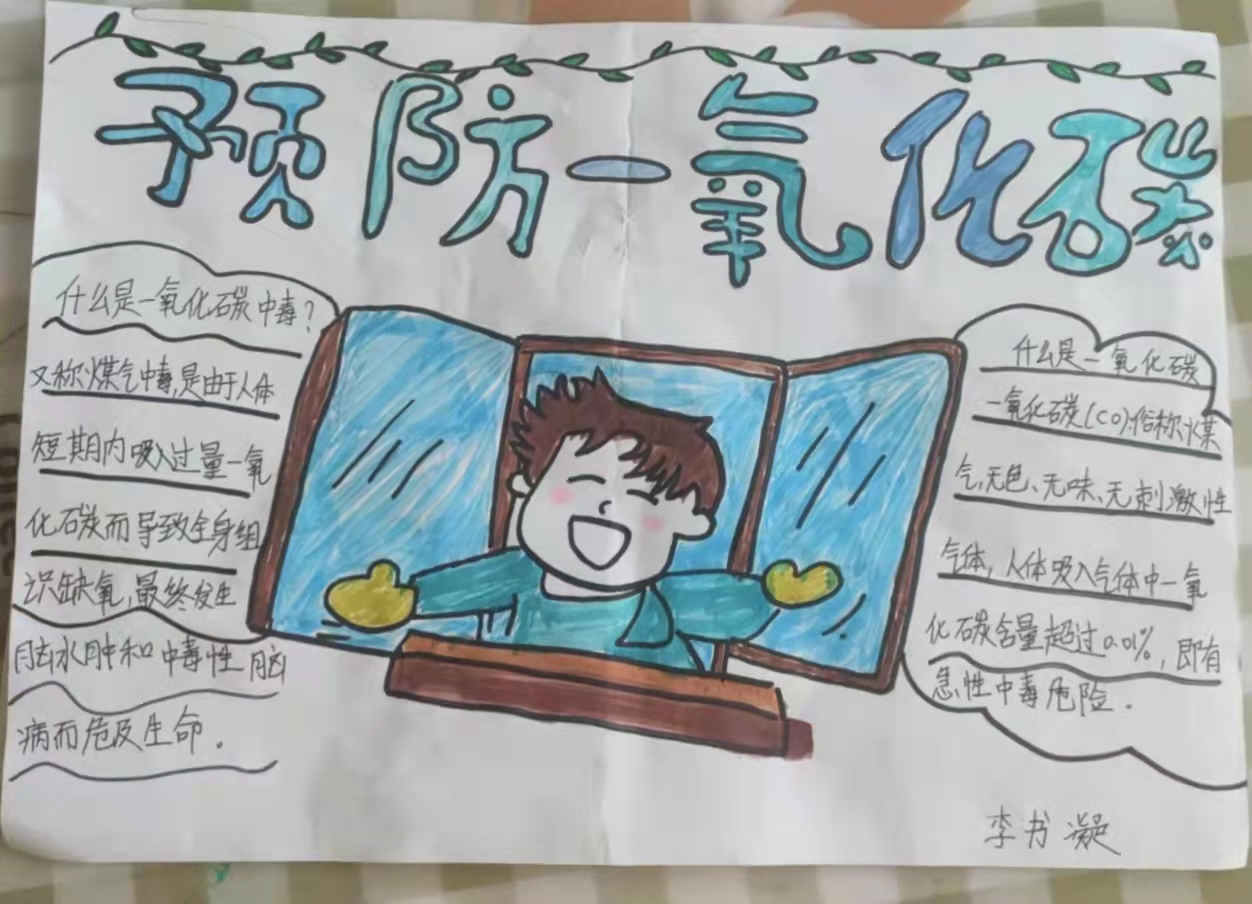 预防一氧化碳
什么是一氧化碳中毒?
又称煤气中毒,是由于人体
短期内吸入过量一氧
化碳而导致全身组
识缺氧,最终发生
脑水肿和中毒性脑
病而危及生命.
什么是一氧化碳
一氧化碳(CO)俗称煤
气,无色、无味、无刺激性
气体,人体吸入气体中一氧
化碳含量超过0.01%,即有
急性中毒危险.
李书凝